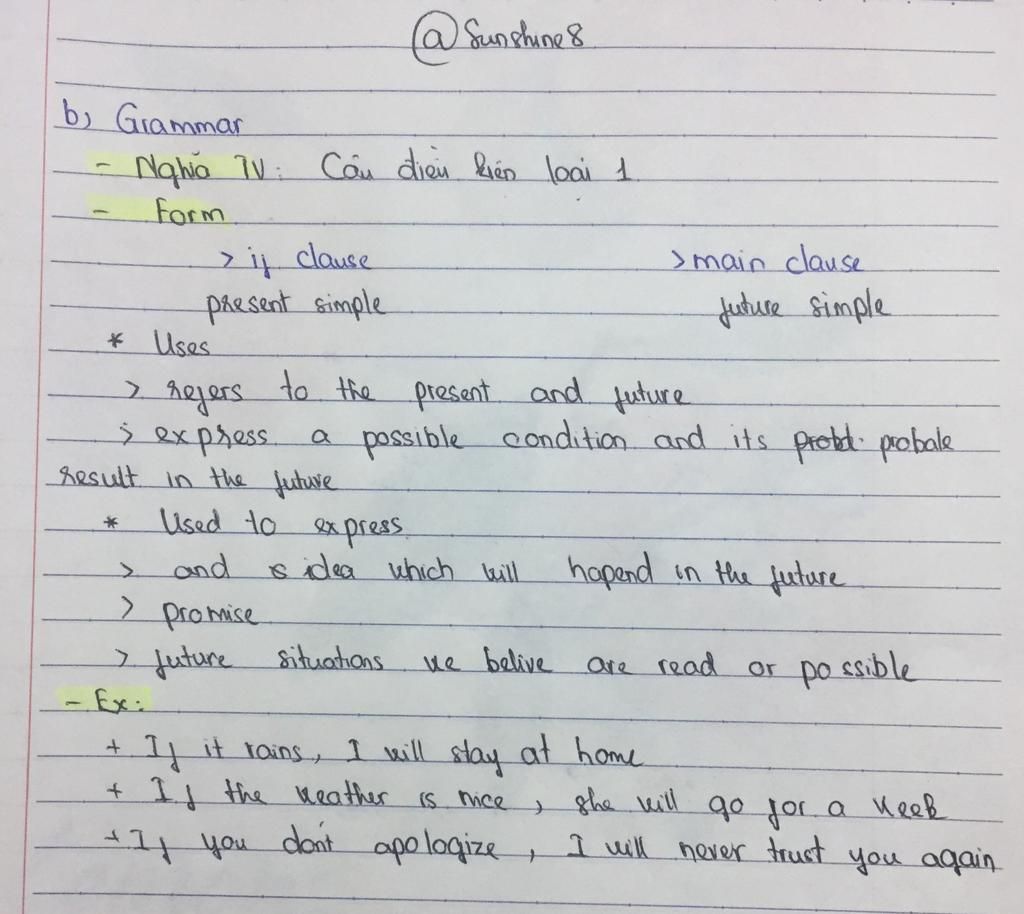 @ Sunshine8
b, Grammar
- Nghĩa TV: Câu điều kiện loại 1
- Form
> if clause > main clause
present simple future simple
* Uses
> refers to the present and future
> express a possible condition and its probale
result in the future
* Used to express
> and is idea which will hapend in the future
> promise
> future situations we belive are read or possible
- Ex:
+ If it rains, I will stay at home
+ If the weather is nice, she will go for a week
+ If you don't apologize, I will never trust you again